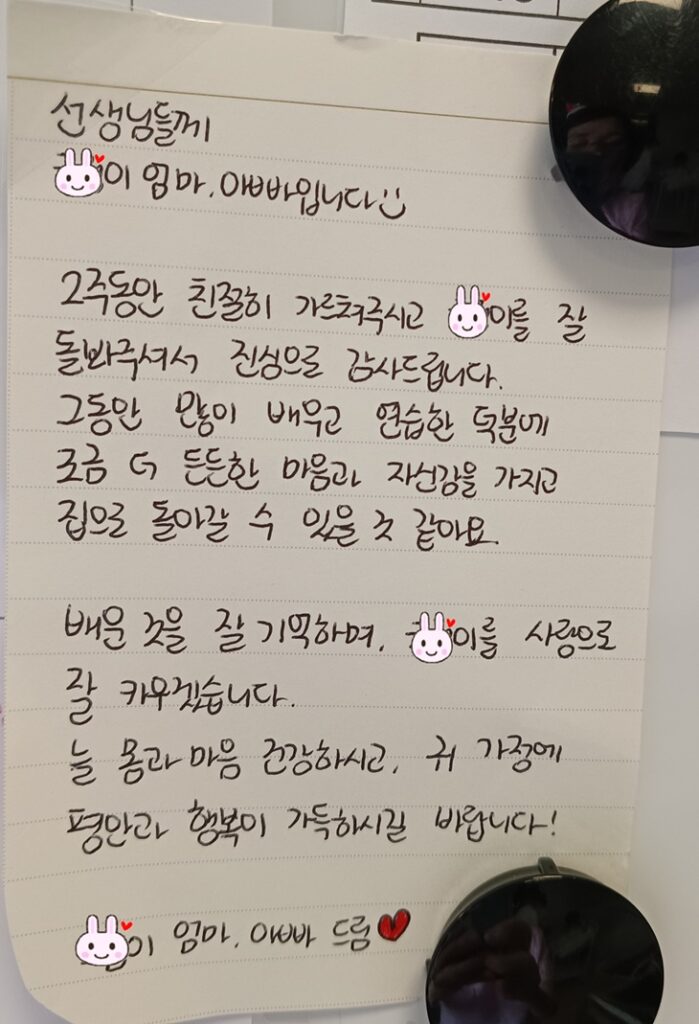 선생님들께
이 엄마, 아빠입니다
2주동안 친절히 가르쳐주시고 이를 잘
돌봐주셔서 진심으로 감사드립니다.
그동안 많이 배우고 연습한 덕분에
조금 더 든든한 마음과 자신감을 가지고
집으로 돌아갈 수 있을 것 같아요.
배운 것을 잘 기억하며, 이를 사랑으로
잘 키우겠습니다.
늘 몸과 마음 건강하시고, 귀 가정에
평안과 행복이 가득하시길 바랍니다!
이 엄마, 아빠 드림